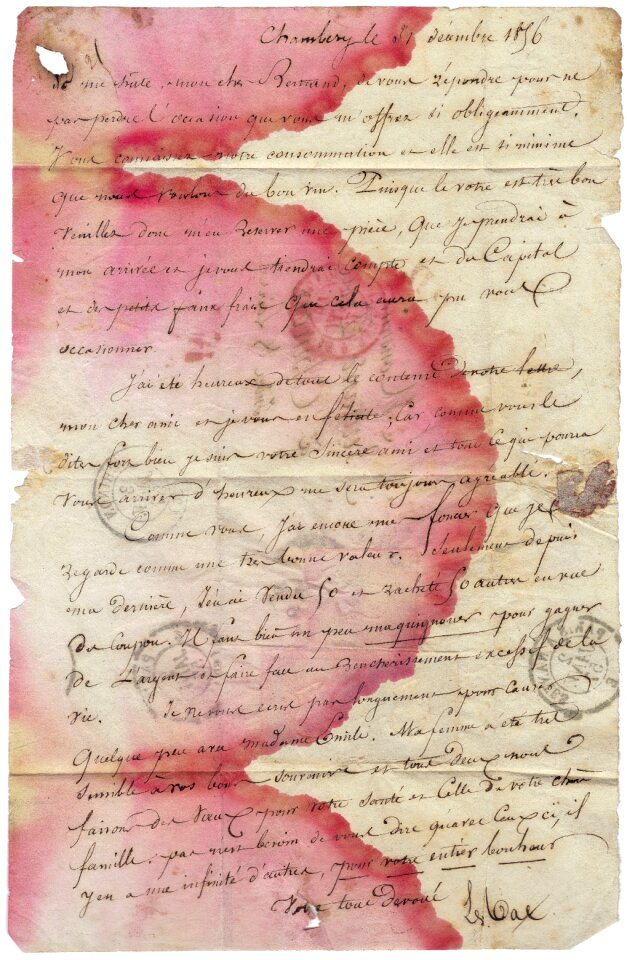 Chambery le 31 décembre 1856
de me hâte, mon cher Bertrand, de vous répondre pour ne
pas perdre l'occasion que vous m'offrez si obligeamment.
Vous connaissez notre consommation et elle est si minime
que nous voulons du bon vin. Puisque le votre est très bon
veuillez donc m'en réserver une pièce, que je prendrai à
mon arrivée et je vous tiendrai compte et du Capital
et des petits faux frais que cela aura pu vous
occasionner.
J'ai été heureux de tout le contenu de votre lettre,
mon cher ami et je vous en félicite, Car comme vous le
dites fort bien je suis votre Sincère ami et tout ce qui pourra
vous arriver d'heureux me sera toujours agréable.
Comme vous, J'ai encore me foncier que je
regarde comme une très bonne valeur. Seulement depuis
ma dernière, J'en ai vendu 50 et racheté 50 autres en vue
du Coupon. Il faut bien un peu maquignoner pour gagner
De L'argent et faire face au Renchérissement excessif de la
vie. Je ne vous écris pas longuement pour causer
Quelque peu a madame Emile. Ma femme a été très
sensible à vos bons souvenirs et tous deux nous
faisons des Vœux pour votre santé et Celle de votre chère
famille. pas n'est besoin de vous dire qu'avec ceux ci, il
y en a une infinité d'autres, pour votre entier bonheur
Votre tout dévoué